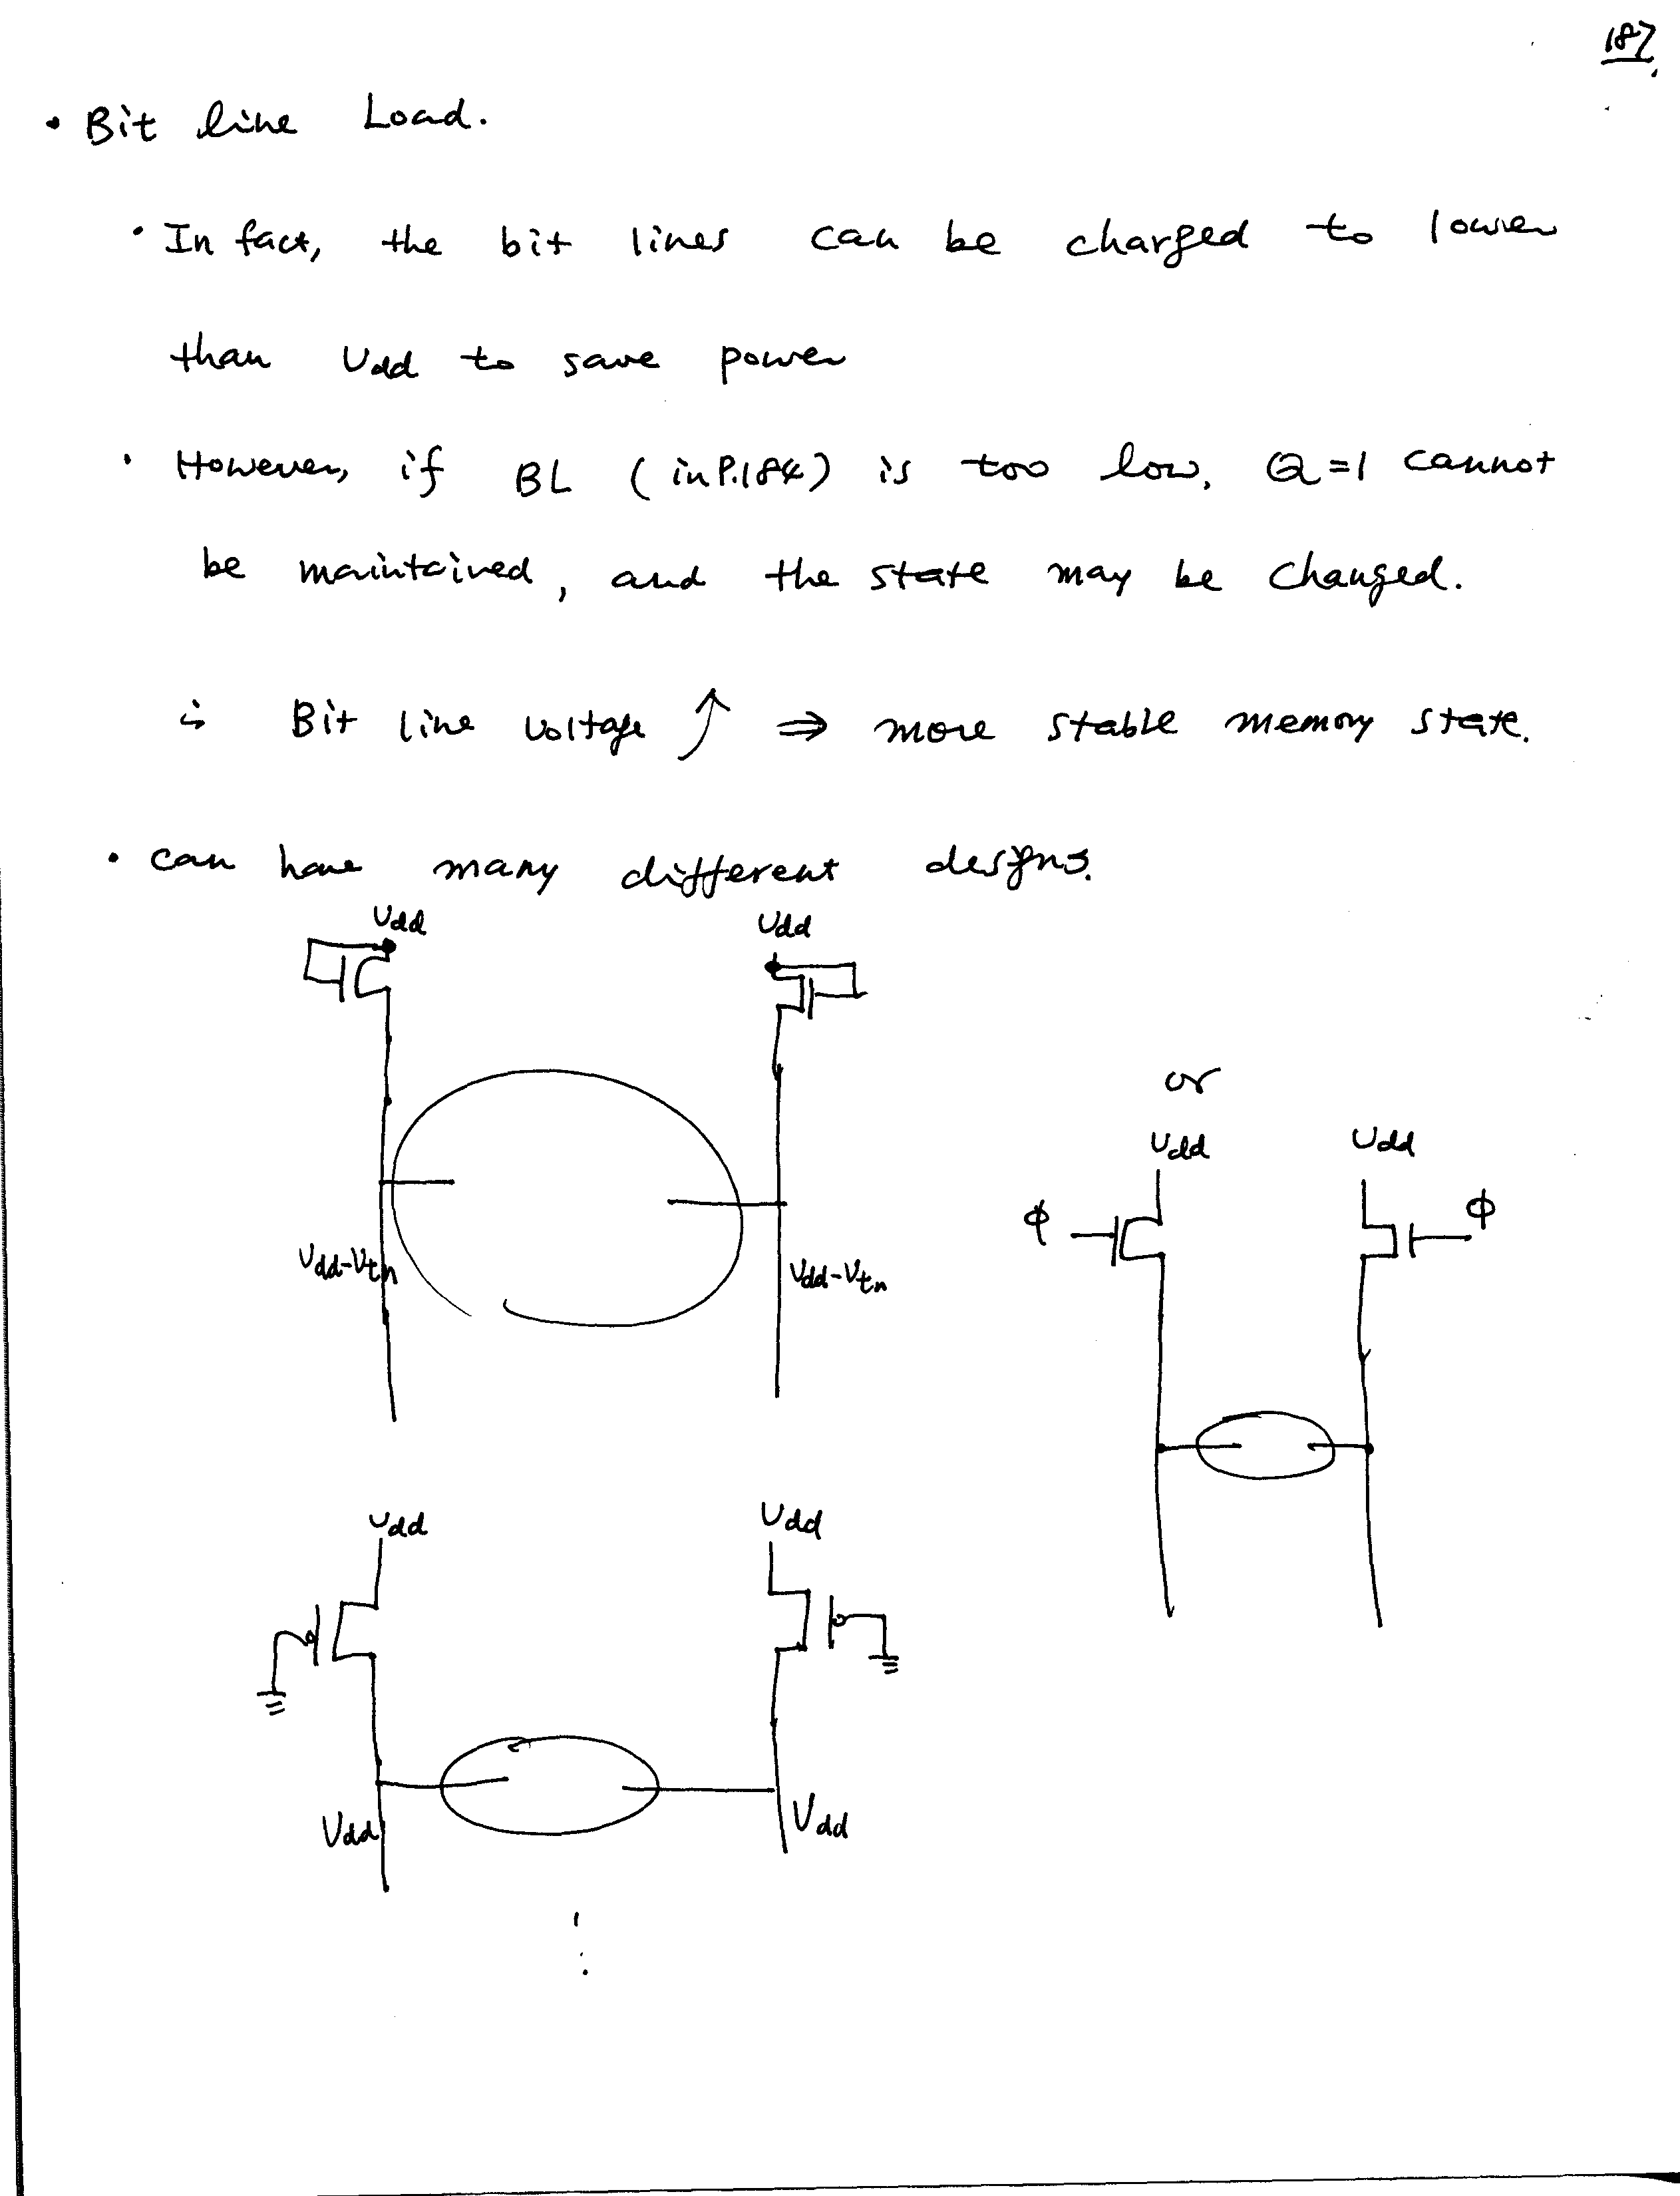 187.
• Bit line Load.
• In fact, the bit lines can be charged to lower
than Vdd to save power
• However, if BL (in P.184) is too low, Q=1 cannot
be maintained, and the state may be changed.
∴ Bit line voltage ↑ ⇒ more stable memory state.
• can have many different designs.
Vdd Vdd
or
Vdd Vdd
ϕ ϕ
Vdd-Vtn Vdd-Vtn
Vdd Vdd
Vdd Vdd
⋮